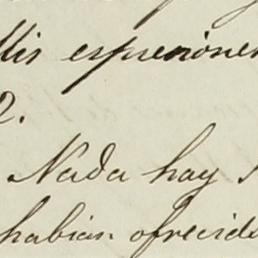 espreciones
2.
Nada hay
habian ofrecido